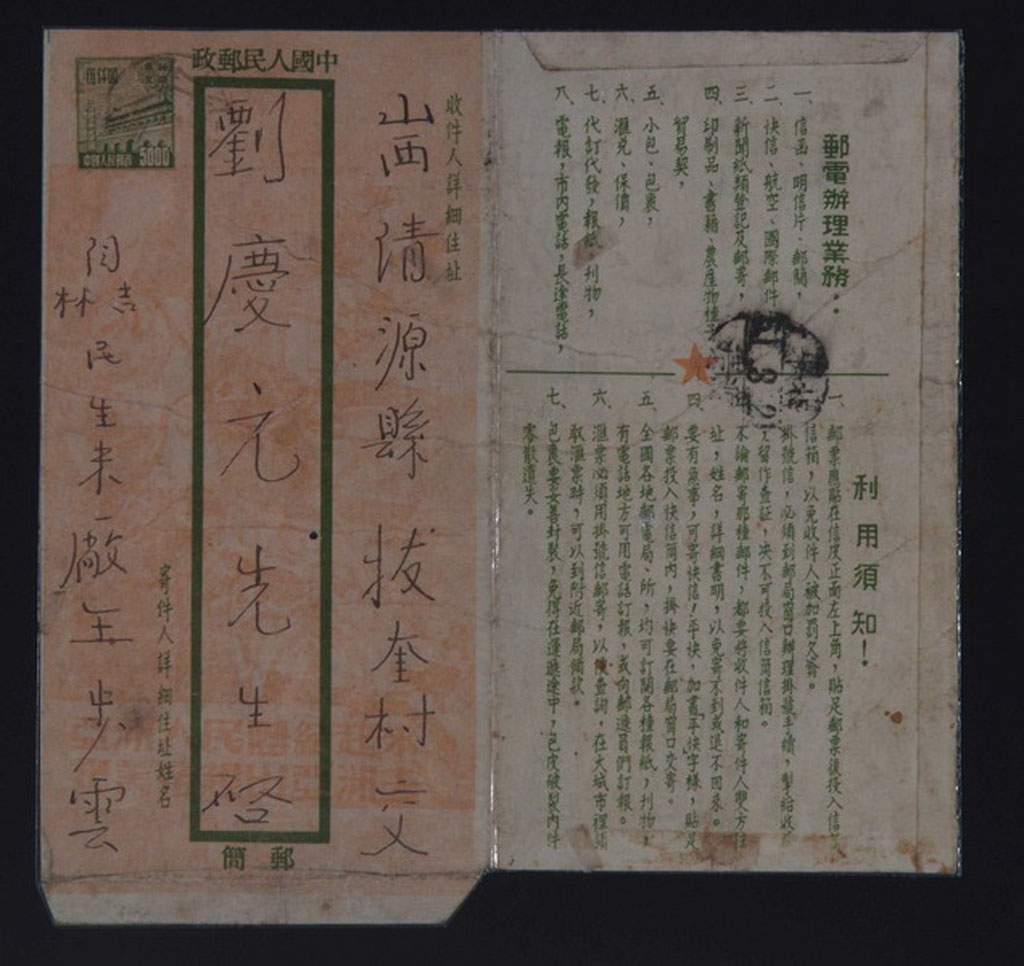 中國人民郵政
伍仟圓
5000
收件人詳細住址
山西清源縣拔奎村交
劉慶元先生啓
寄件人詳細住址姓名
吉林
民生米廠
步雲
郵簡
郵電辦理業務：
一、信函、明信片、郵簡，
二、快信、航空、國際郵件
三、新聞紙類登記及郵寄，
四、印刷品、書籍、農產物種子
貿易契，
五、小包、包裹，
六、滙兌、保價，
七、代訂代發，報紙，刊物，
八、電報，市內電話，長途電話，
利用須知！
一、郵票應貼在信皮正面左上角，貼足郵票後投入信
信箱，以免收件人被加罰欠資。
掛號信，必須到郵局窗口辦理掛號手續，掣給收
，留作查証，決不可投入信筒信箱。
不論郵寄那種郵件，都要將收件人和寄件人雙方住
址，姓名，詳細書明，以免寄不到或退不回來。
四、要有急事，可寄快信！平快，加書「平快」字樣，貼足
郵票投入快信筒內，掛快要在郵局窗口交寄。
五、全國各地郵電局、所，均可訂閱各種報紙，刊物，
有電話地方可用電話訂報，或向郵遞員們訂報。
六、滙票必須用掛號信郵寄，以備查詢，在大城市裡領
取滙票時，可以到附近郵局領款。
七、包裹要妥善封裝，免得在運遞途中，包皮破裂內件
零散遺失。